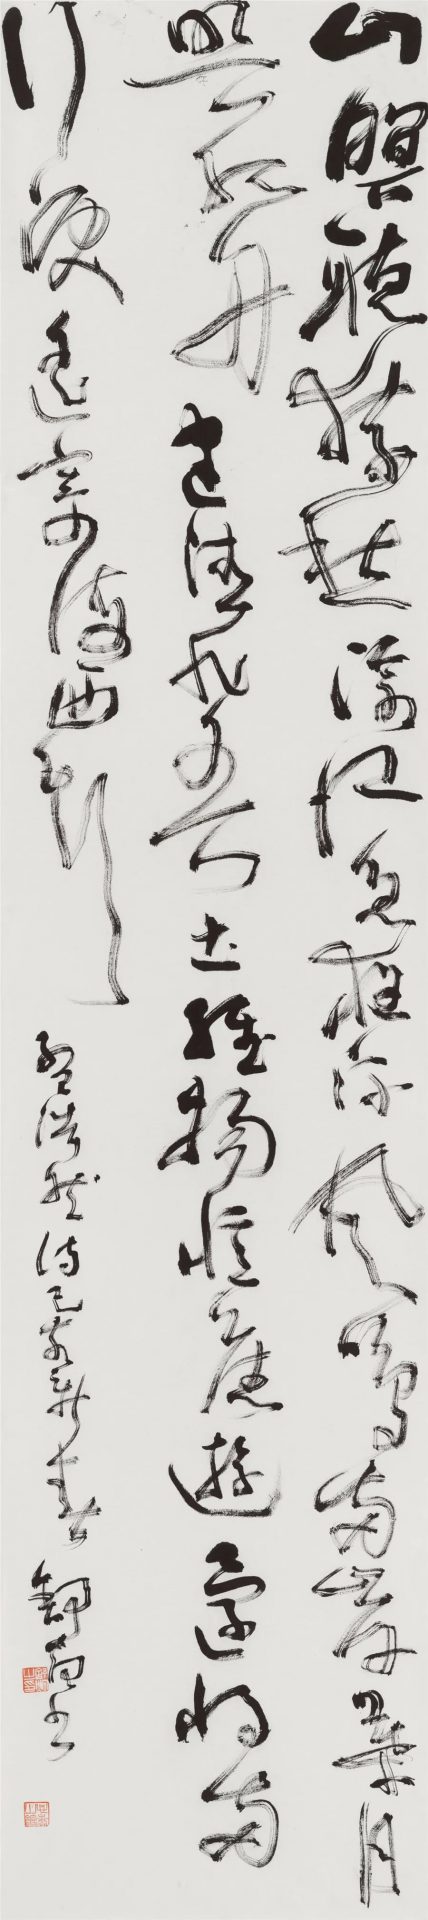 山暝聽猿愁滄江急夜流風鳴兩岸葉月
照一孤舟建德非吾土維揚憶舊遊還將兩
行淚遙寄海西頭
孟浩然詩己亥新春舒書